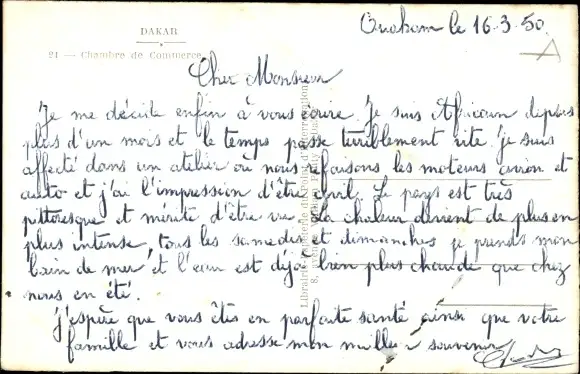 DAKAR
21 — Chambre de Commerce
le 16.3.50
Cher Monsieur
Je me décide enfin à vous écrire. Je suis Africain depuis
plus d'un mois et le temps passe terriblement vite. je suis
affecté dans un atelier où nous refaisons les moteurs avion et
auto et j'ai l'impression d'être civil. Le pays est très
pittoresque et mérite d'être vu. La chaleur devient de plus en
plus intense, tous les samedis et dimanches je prends mon
bain de mer, et l'eau est déjà bien plus chaude que chez
nous en été.
j'espère que vous êtes en parfaite santé ainsi que votre
famille et vous adresse mon meilleur souvenir